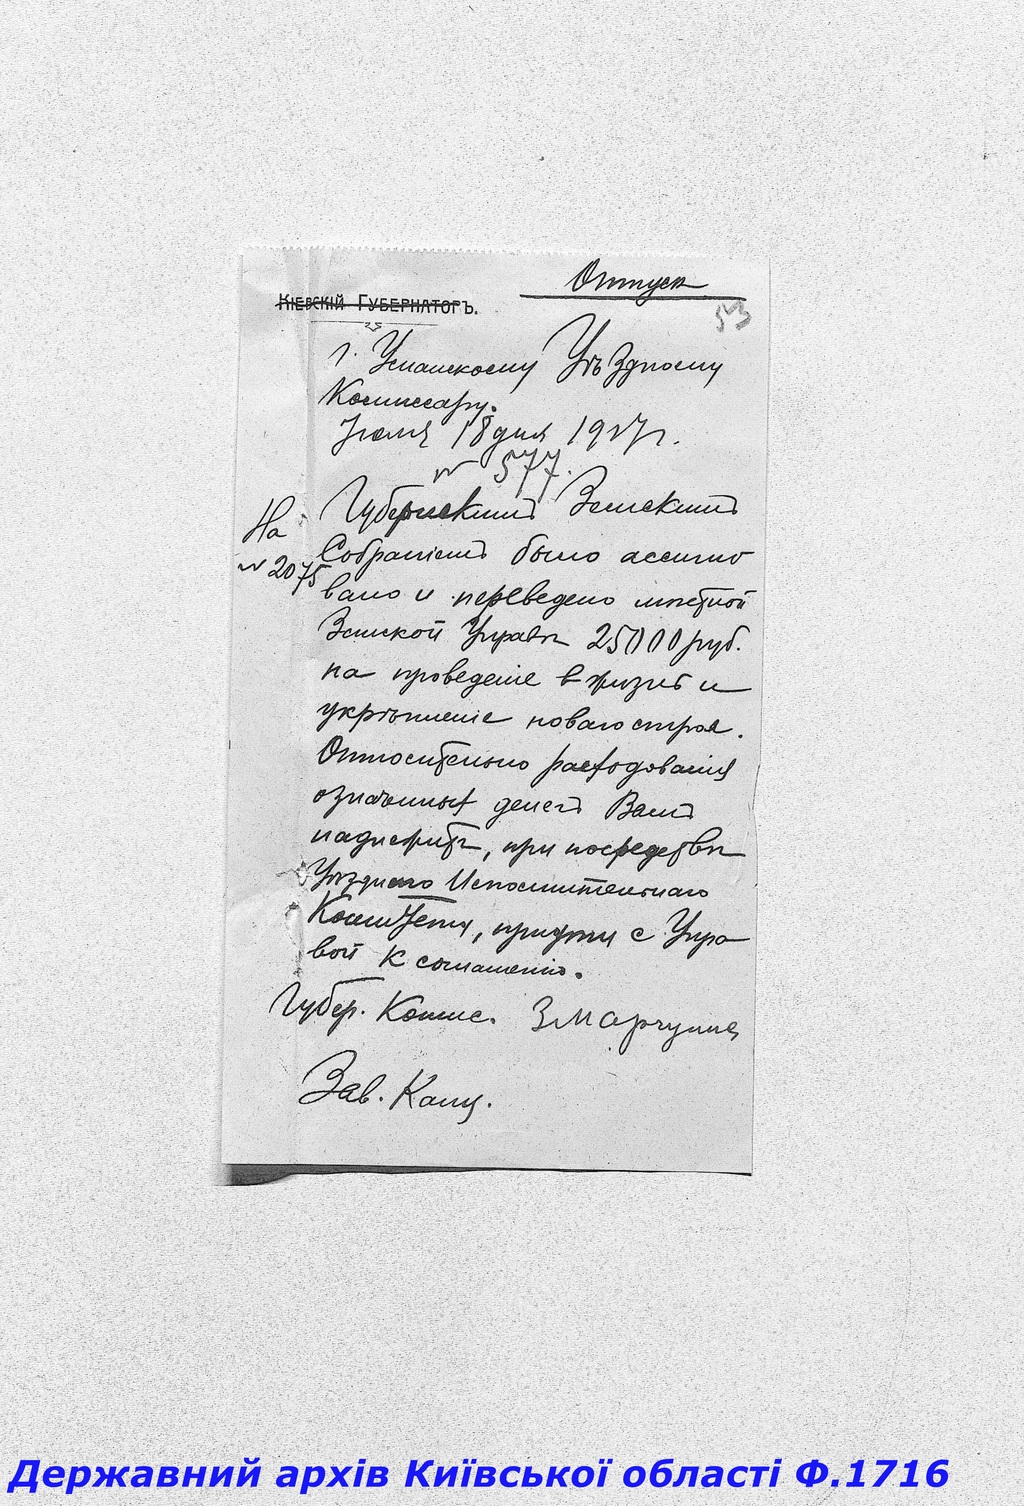 Отпуск
Кіевскій Губернаторъ.
53
г. Уманскому Уѣздному
Комиссару.
Іюля 18 дня 1917 г.
№ 577.
На
№ 2075
Губернскимъ Земскимъ
Собраніемъ было ассигно
вано и переведено мѣстной
Земской Управѣ 25000 руб.
на проведеніе в жизнь и
укрѣпленіе новаго строя.
Относительно расходованія
означенныхъ денегъ Вамъ
надлежитъ, при посредствѣ
Уѣзднаго Исполнительнаго
Комитета, придти с Упра
вой к соглашенію.
Губер. Комис.
Зав. Канц.
Державний архів Київської області Ф.1716